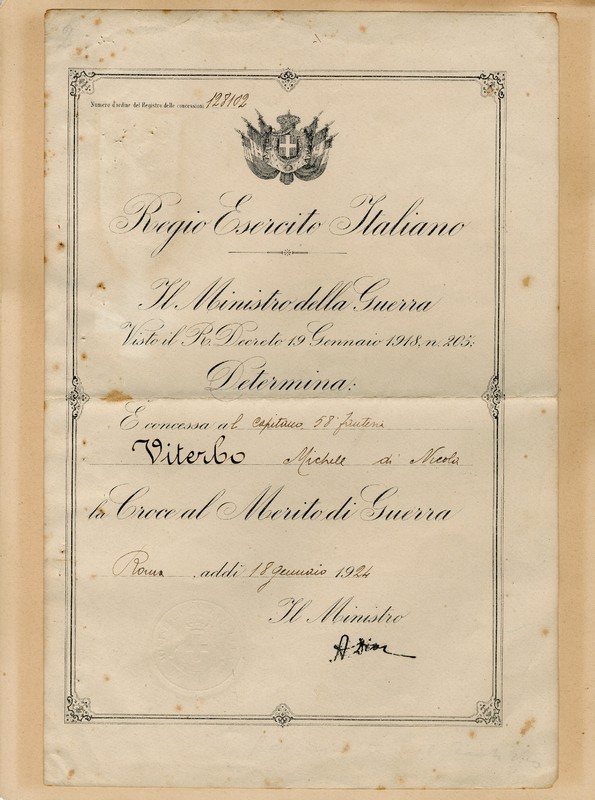 2
Numero d'ordine del Registro delle concessioni 128102
Regio Esercito Italiano
Il Ministro della Guerra
Visto il R. Decreto 19 Gennaio 1918, n. 205;
Determina:
È concessa al capitano 58° fanteria
Viterbo Michele di Nicola
la Croce al Merito di Guerra
Roma addì 18 gennaio 1924
Il Ministro
A. Diaz